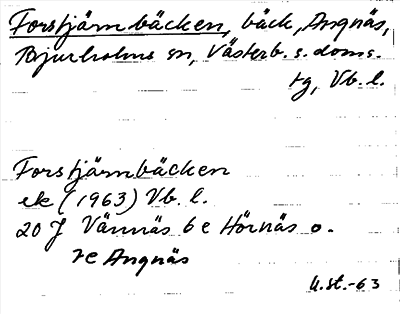 Forstjärnbäcken, bäck, Angnäs,
Bjurholms sn, Västerb. s. doms.
tg, Vb. l.
Forstjärnbäcken
ek (1963) Vb. l.
20 J Vännäs 6 e Hörnäs o.
7e Angnäs
U.st.-63